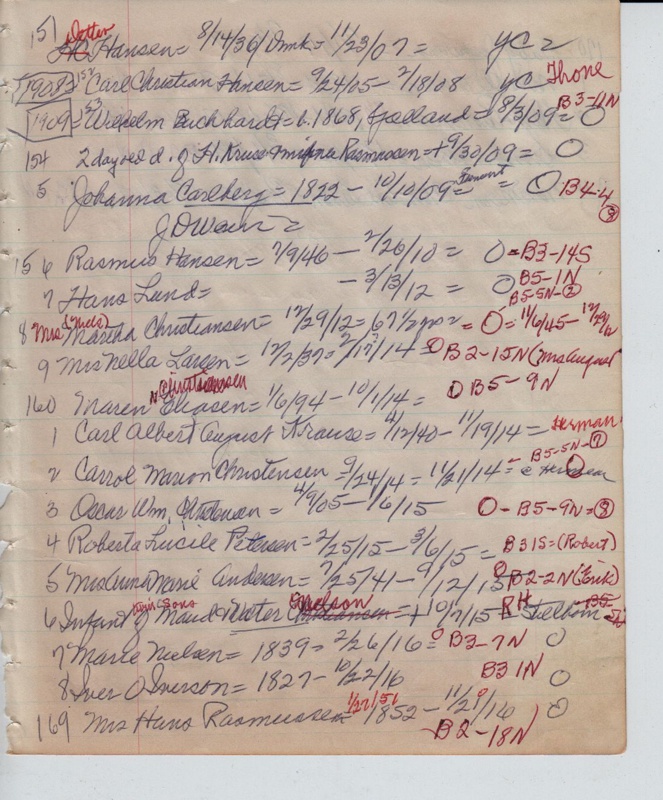 Dotter
151 Hansen = 8/14/36 / Dmk = 11/23/07 = yc 2
1908 152 Carl Christian Hansen = 9/24/05 - 2/18/08 yc Throne
1909 153 = Wilhelm Buchhardt = b. 1868, Sjelland = 8/3/09 = O B3-11N
154 2 day old d. of H. Kruse + Rasmussen = + 9/30/09 = O
5 Johanna Carlberg = 1822 - 10/10/09 = = O B4-4
156 Rasmus Hansen = 7/9/46 - 2/26/10 = O = B3-14S
7 Hans Lund = - 3/13/12 = O B5-1N
B5-5N-2
8 Mrs Martha Christiansen = 12/29/12 = 67 1/2 yr = O = 11/6/45 - 12/29/12
9 Mrs Nella Larsen = 12/2/37 = 2/17/14 = O B2-15N (Mrs August
Christiansen
160 Maren Eliasen = 1/6/94 - 10/1/14 = O B5-9N
1 Carl Albert August Krause = 4/12/40 - 11/19/14 = Herman
B5-5N-7
2 Carrol Marion Christensen = 9/24/14 = 11/21/14 =
3 Oscar Wm. Christensen = 4/9/05 - 1/6/15 O - B5-9N = 8
4 Roberta Lucile Petersen = 2/25/15 - 3/6/15 = B3 1S = (Robert)
5 Mrs Anna Marie Andersen = 7/25/41 - 9/12/15 O B2-2N (Erik)
twin sons Nelson
6 Infant of Maud Water Christiansen = + 10/7/15 = Stelhorn
7 Marie Nielsen = 1839 = 2/26/16 = O B3-7N O
8 Iver O Iverson = 1827 - 10/22/16 B3 1N O
1/27/51
169 Mrs Hans Rasmussen = 1852 - 11/21/16 O
B2-18N